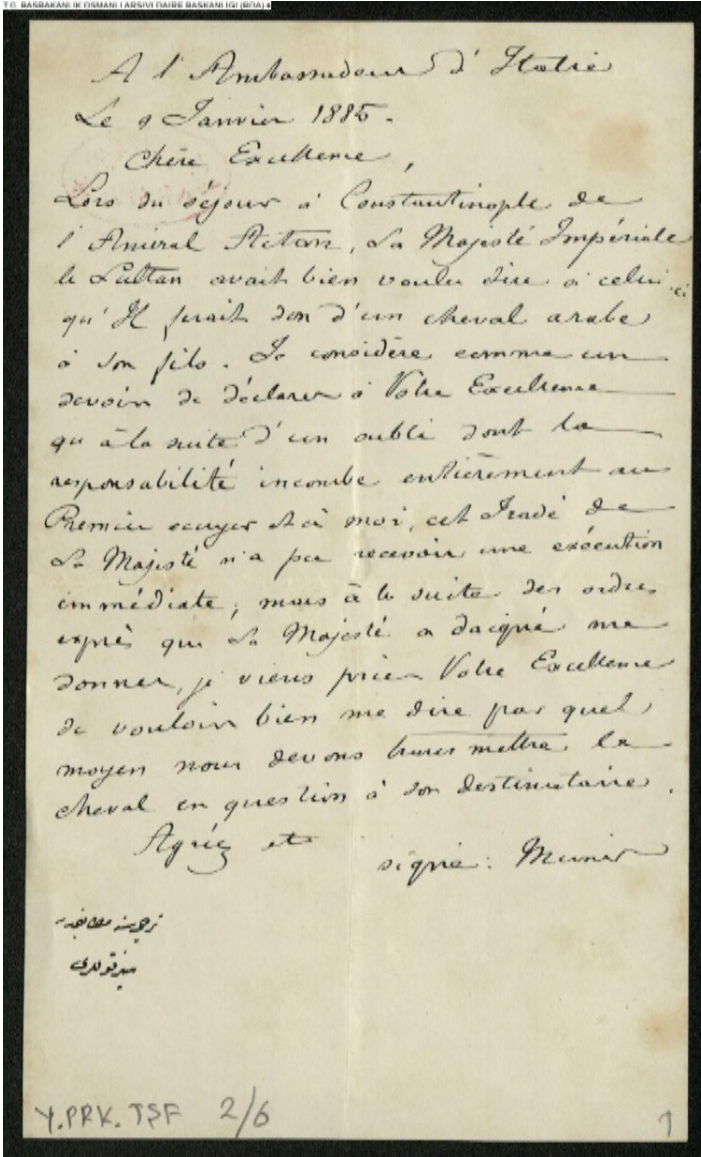 T.C. BAŞBAKANLIK OSMANLI ARŞİVİ DAİRE BAŞKANLIĞI (BOA)
A l'Ambassadeur d'Italie
Le 9 Janvier 1885.
Chère Excellence,
Lors du séjour à Constantinople de
l'Amiral Acton, Sa Majesté Impériale
le Sultan avait bien voulu dire à celui-ci
qu'Il ferait don d'un cheval arabe
à son fils. Je considère comme un
devoir de déclarer à Votre Excellence
qu'à la suite d'un oubli dont la
responsabilité incombe entièrement au
Premier écuyer et à moi, cet Iradé de
Sa Majesté n'a pu recevoir une exécution
immédiate; mais à la suite des ordres
exprès que Sa Majesté a daigné me
donner, je viens prier Votre Excellence
de vouloir bien me dire par quel
moyen nous devons transmettre le
cheval en question à son destinataire.
Agréez etc
signé: Munir
Y.PRK.TSF 2/6
1